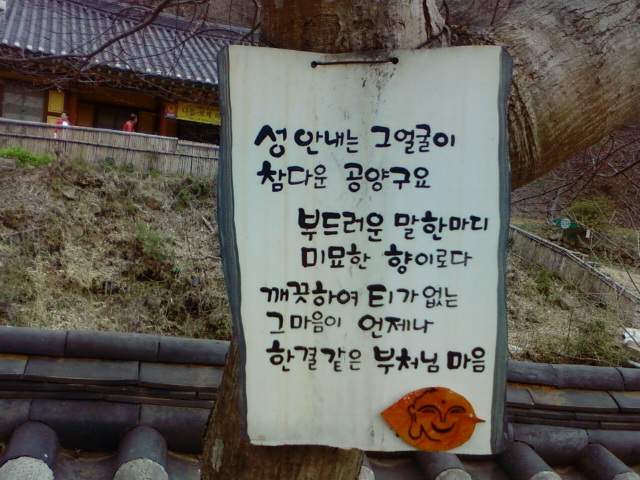 성 안내는 그얼굴이
참다운 공양구요
부드러운 말한마디
미묘한 향이로다
깨끗하여 티가없는
그마음이 언제나
한결같은 부처님 마음